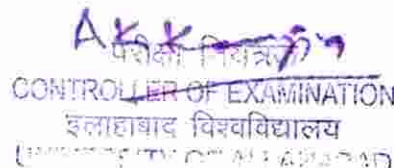 परीक्षा नियंत्रक
CONTROLLER OF EXAMINATION
इलाहाबाद विश्वविद्यालय
UNIVERSITY OF ALLAHABAD